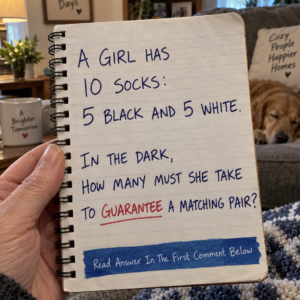 Days
Cozy
People
Happier
Homes
A
Brighter
Tomorrow
A GIRL HAS
10 SOCKS:
5 BLACK AND 5 WHITE.
IN THE DARK,
HOW MANY MUST SHE TAKE
TO GUARANTEE A MATCHING PAIR?
Read Answer In The First Comment Below